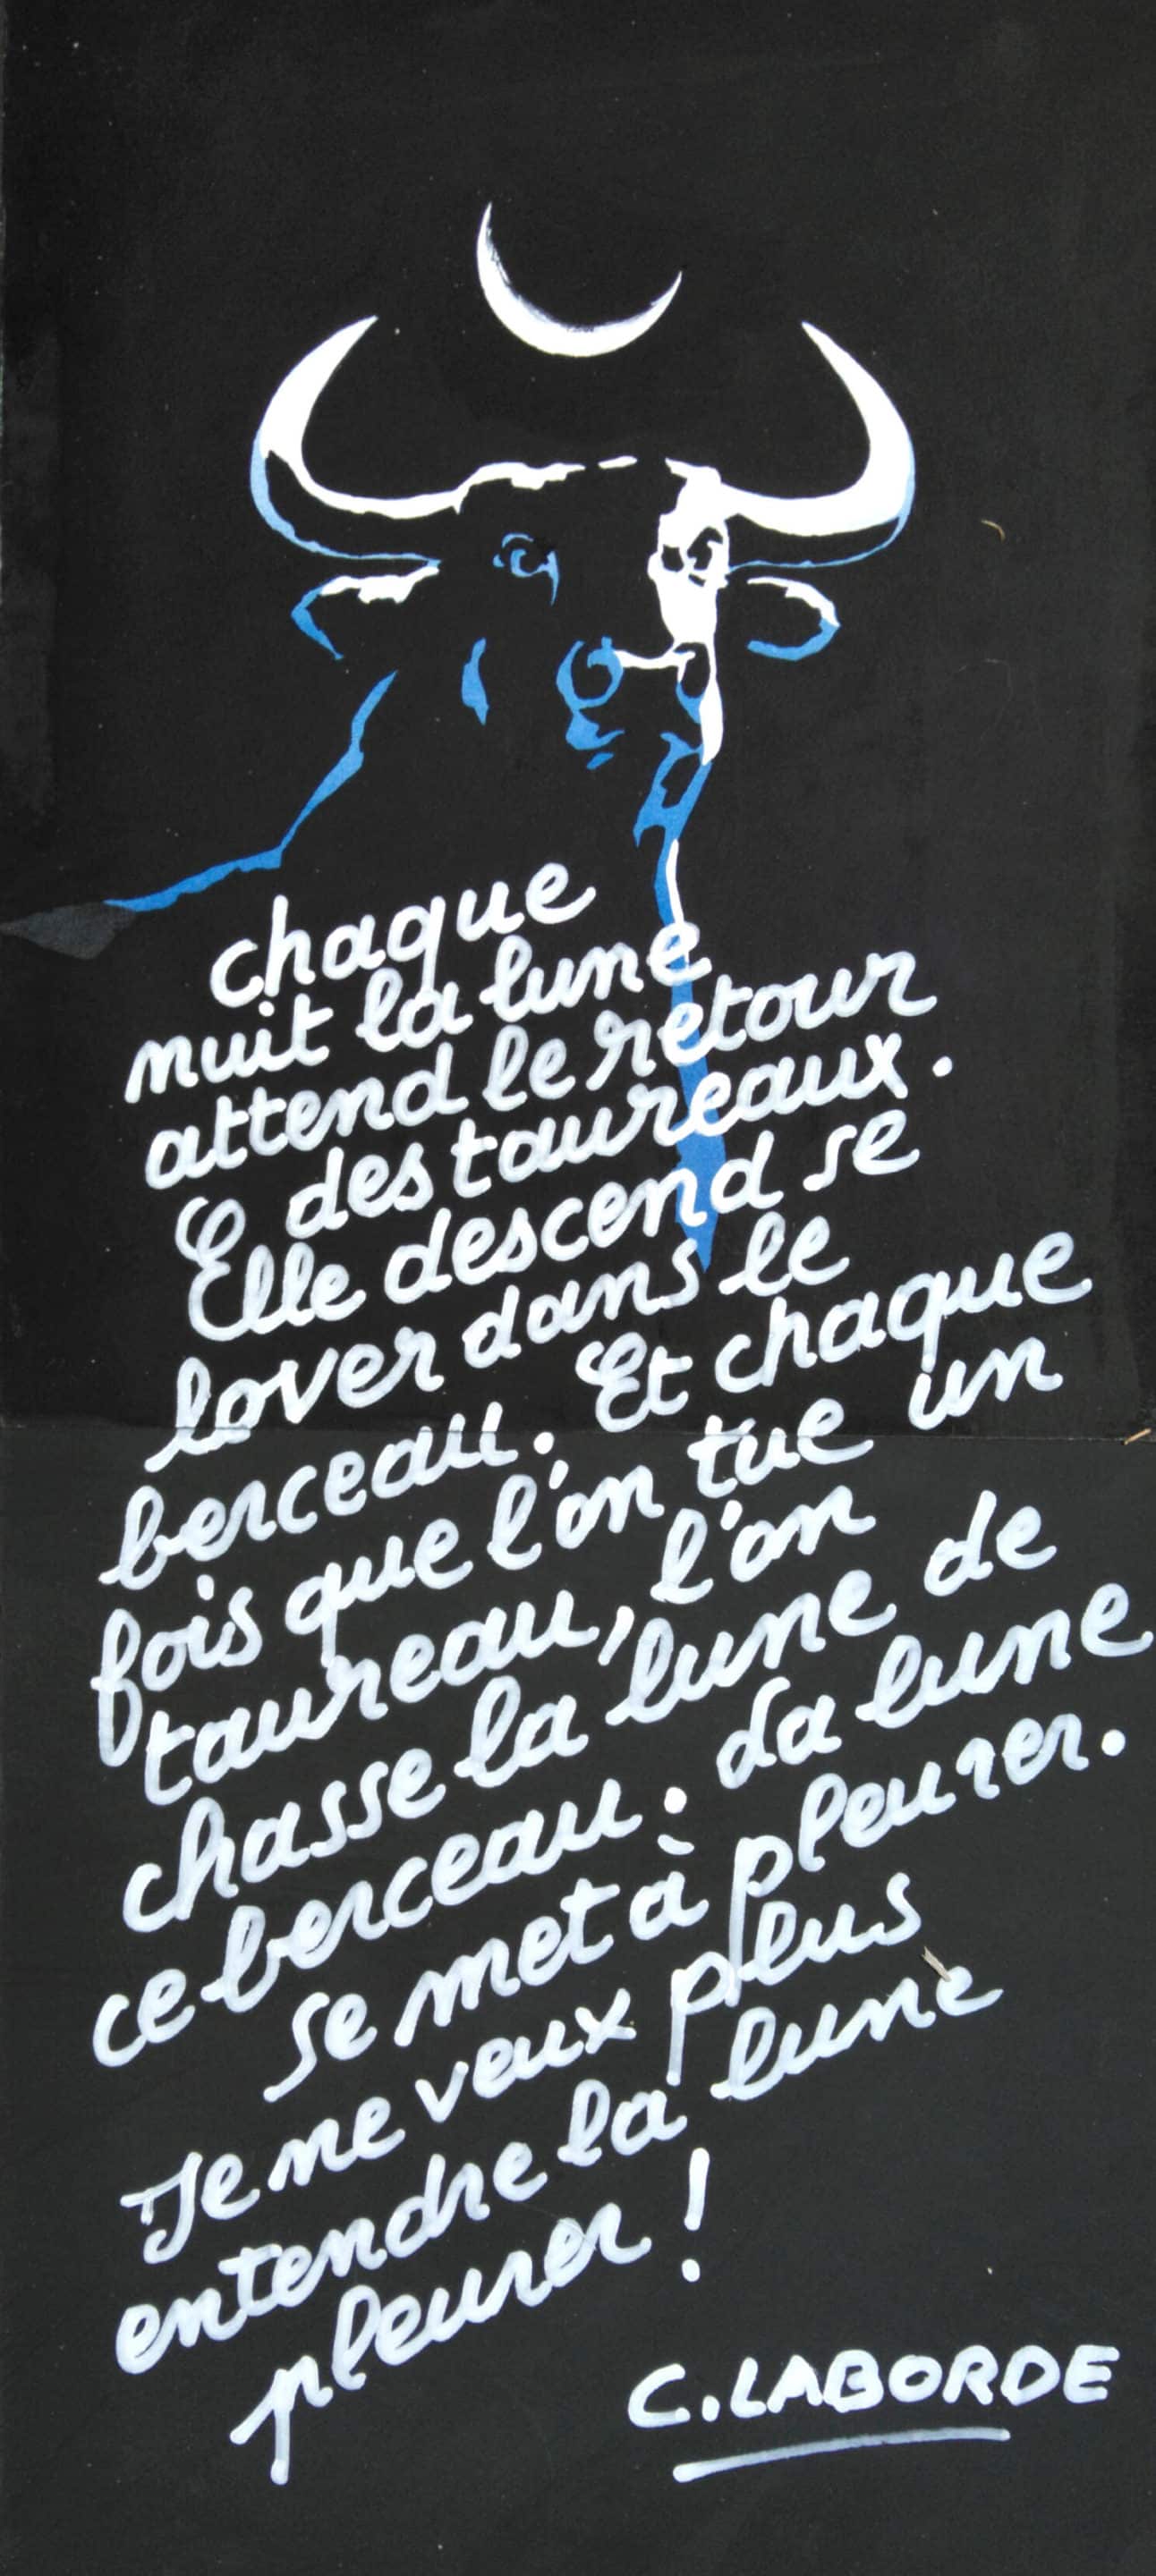 chaque
nuit la lune
attend le retour
des taureaux.
Elle descend se
lover dans le
berceau. Et chaque
fois que l'on tue un
taureau, l'on
chasse la lune de
ce berceau. La lune
se met à pleurer.
Je ne veux plus
entendre la lune
pleurer !
C. LABORDE